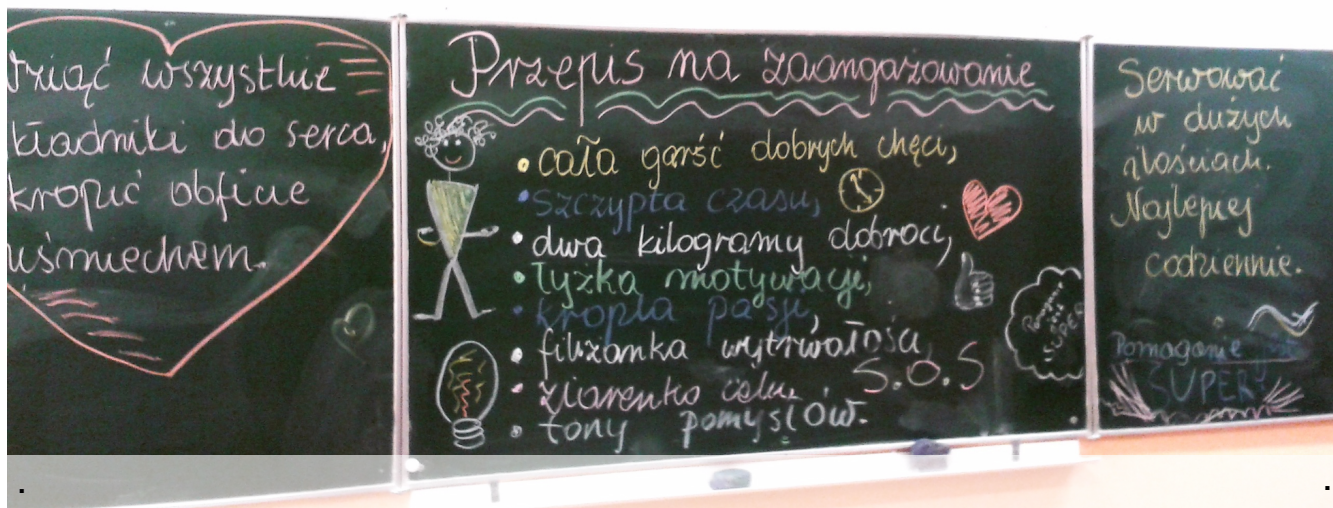 wziąć wszystkie
składniki do serca,
kropić obficie
uśmiechem.
Przepis na zaangażowanie
• cała garść dobrych chęci,
• szczypta czasu,
• dwa kilogramy dobroci,
• łyżka motywacji,
• kropla pasji,
• filiżanka wytrwałości,
• ziarenko celu,
• tony pomysłów.
S.O.S
Pomaganie
jest
SUPER
Serwować
w dużych
ilościach.
Najlepiej
codziennie.
Pomaganie
SUPER!